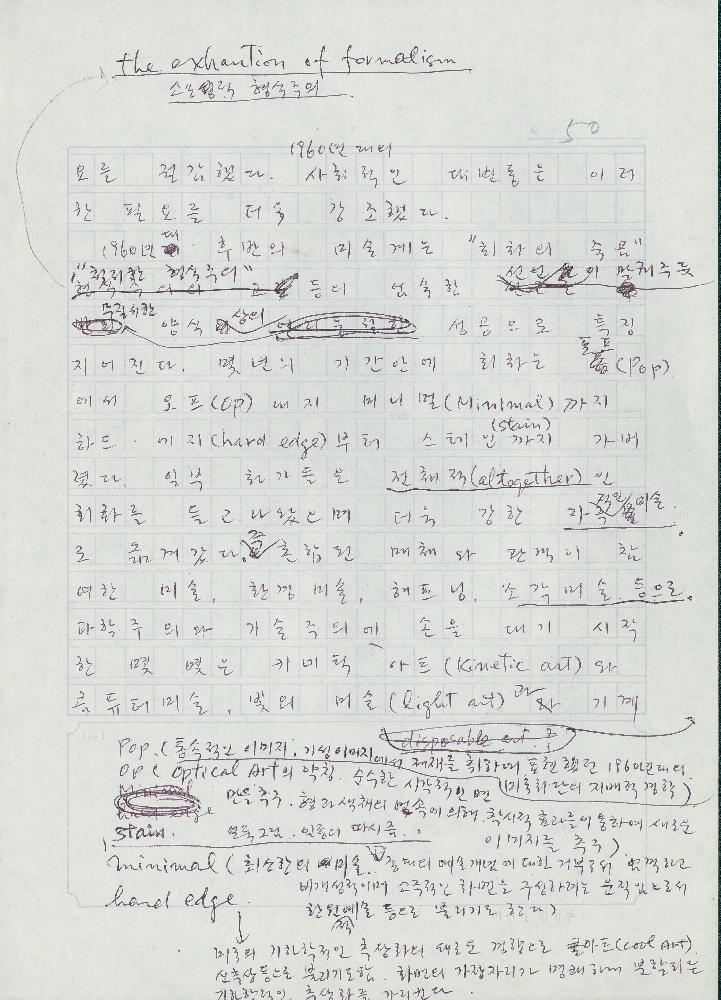 the exhaution of formalism
형식주의
50
1960년대의
요를 절감했다. 사회적인 대변동은 이러
한 필요를 더욱 강조했다.
1960년대 후반의 미술계는 "회화의 죽음"
"형식주의" 등의 엄숙한 선언
양식상의 성공으로 특징
지어진다. 몇년의 기간안에 회화는 팝(Pop)
에서 오프(Op) 내지 미니멀(Minimal)까지
(stain)
하드·에지(hard edge)부터 스테인까지 가버
렸다. 일부 화가들은 전체적(altogether)인
회화를 들고나왔으며 더욱 강한 미술.
로 옮겨갔다. 혼합된 매체와 관객이 참
여한 미술, 환경미술, 해프닝, 소각미술 등으로.
과학주의와 기술주의에 손을 대기 시작
한 몇몇은 키네틱 아트(Kinetic art)와
콤퓨터미술, 빛의 미술(light art)과 기계
disposable art
Pop. (통속적인 이미지, 기성이미지에서 제재를 취하여 표현했던 1960년대의
미국화단의 지배적 경향)
OP( Optical Art의 약칭. 순수한 시각적인 면
만을 추구. 형과 색채의 에 의해 착시적 효과를 통하여 새로운
이미지를 추구)
stain. 얼룩그림. 일종의
minimal (최소한의 미술. 예술개념에 대한 거부로서 엄격하고
비개성적이며 소극적인 화면을 구성하려는 움직임으로서
환원적 예술 등으로 불리기도 한다)
hard edge
미국의 기하학적인 추상화의 새로운 경향으로 쿨아트(cool Art).
신추상 등으로 불리기도함. 화면의 가장자리가 명쾌하게
기하학적인 추상화를 가리킨다.